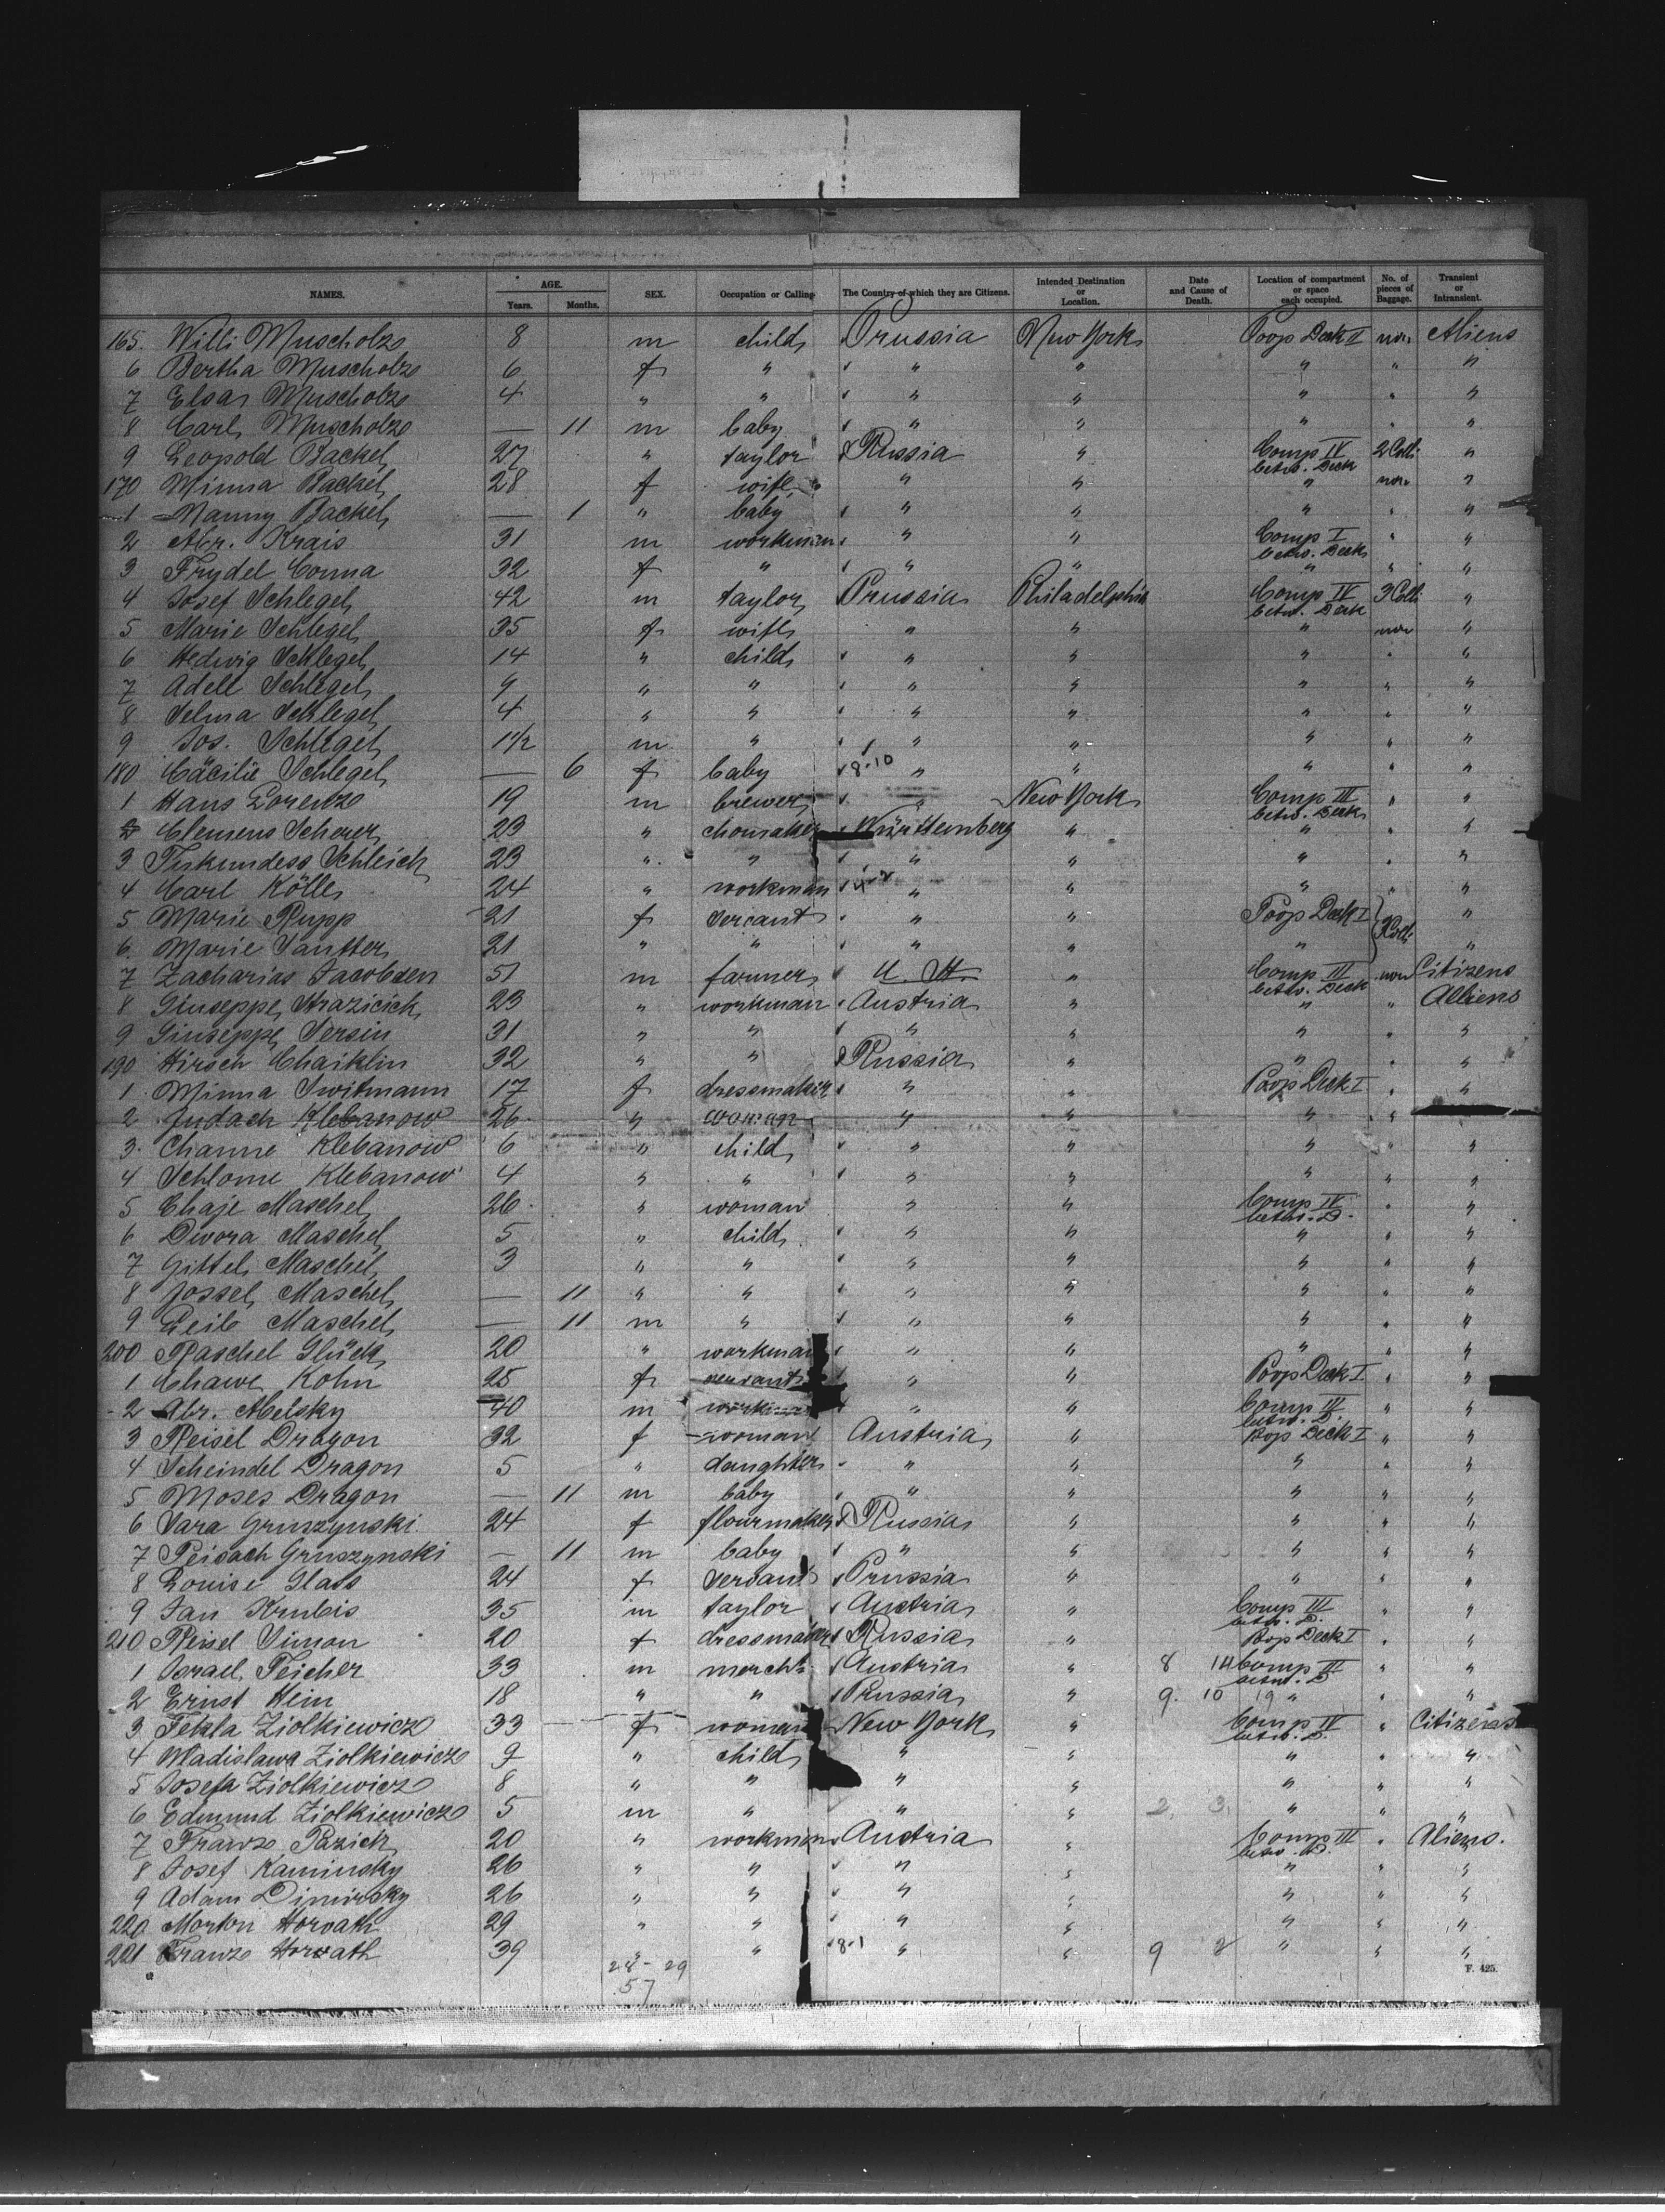 NAMES. AGE. Years. Months. SEX. Occupation or Calling The Country of which they are Citizens. Intended Destination or Location. Date and Cause of Death. Location of compartment or space each occupied. No. of pieces of Baggage. Transient or Intransient.
165. Willi Muscholz 8 m child Prussia New York Poop Deck II non Aliens
6 Bertha Muscholz 6 f " " " " " "
7 Elsa Muscholz 4 " " " " " " "
8 Carl Muscholz — 11 m baby " " " " "
9 Leopold Backel 27 " taylor Russia " Comp IV betw. Deck 2 Colli "
170 Minna Backel 28 f wife " " " non "
1 Manny Backel — 1 " baby " " " " "
2 Abr. Krais 31 m workman " " Comp I betw. Deck " "
3 Frydel Conna 32 f " " " " " "
4 Josef Schlegel 42 m taylor Prussia Philadelphia Comp IV betw. Deck 3 Colli "
5 Marie Schlegel 35 f wife " " " non "
6 Hedwig Schlegel 14 " child " " " " "
7 Adell Schlegel 9 " " " " " " "
8 Selma Schlegel 4 " " " " " " "
9 Jos. Schlegel 1 1/2 m " " " " " "
180 Cäcilie Schlegel — 6 f baby 8-10 " " " " "
1 Hans Lorenz 19 m brewer " New York Comp III betw. Deck " "
2 Clemens Scherer 23 " chomaker Württemberg " " " "
3 Schleich 23 " " " " " " "
4 Carl Kölle 24 " workman " " " " "
5 Marie Rupp 21 f servant " " Poop Deck I "
6. Marie Sautter 21 " " " " " "
7 Zacharias Jacobsen 51 m farmer U. St. " Comp III betw. Deck non Citizens
8 Giuseppe 23 " workman Austria " " " Alliens
9 Giuseppe Persin 31 " " " " " " "
190 Hirsch Chaiklin 32 " " Russia " " " "
1 Minna Switmann 17 f dressmaker " " Poop Deck I " "
2 Judach Klebanow 26 " woman " " " "
3. Channe Klebanow 6 " child " " " "
4 Schlome Klebanow 4 " " " " " " "
5 Chaje Maschel 26 " woman " " Comp IV betw. D. " "
6 Dwora Maschel 5 " child " " " " "
7 Gittel Maschel 3 " " " " " " "
8 Jossel Maschel — 11 " " " " " " "
9 Leib Maschel — 11 m " " " " " "
200 Raschel Glück 20 " workman " " " " "
1 Chawe Kohn 25 f servant " " Poop Deck I " "
2 Abr. Abelsky 40 m " " Comp IV betw. D. " "
3 Reisel Dragon 32 f woman Austria " Poop Deck I " "
4 Scheindel Dragon 5 " daughter " " " " "
5 Moses Dragon — 11 m baby " " " " "
6 Sara Gruszynski 24 f flourmaker Russia " " " "
7 Peisach Gruszynski — 11 m baby " " " " "
8 Louise Glass 24 f servant Prussia " " " "
9 Jan Krubis 35 m taylor Austria " Comp III betw. D. " "
210 Reisel Simon 20 f dressmaker Russia " Poop Deck I " "
1 Israel Teicher 33 m mercht Austria " 8 14 Comp III betw. D " "
2 Ernst Hein 18 " " Prussia " 9. 10 19 " " "
3 Tekla Ziolkiewicz 33 f woman New York " Comp IV betw. D. " Citizens
4 Wladislawa Ziolkiewicz 9 " child " " " " "
5 Josefa Ziolkiewicz 8 " " " " " " "
6 Edmund Ziolkiewicz 5 m " " " 2. 3. " " "
7 Franz Pazich 20 " workman Austria " Comp III betw. D. " Aliens.
8 Josef Kaminsky 26 " " " " " "
9 Adam Dimirsky 26 " " " " " " "
220 Morton Horvath 29 " " " " " " "
221 Franz Horvath 39 " " 8-1 " " 9 2 " " "
28 - 29
57
F. 425.